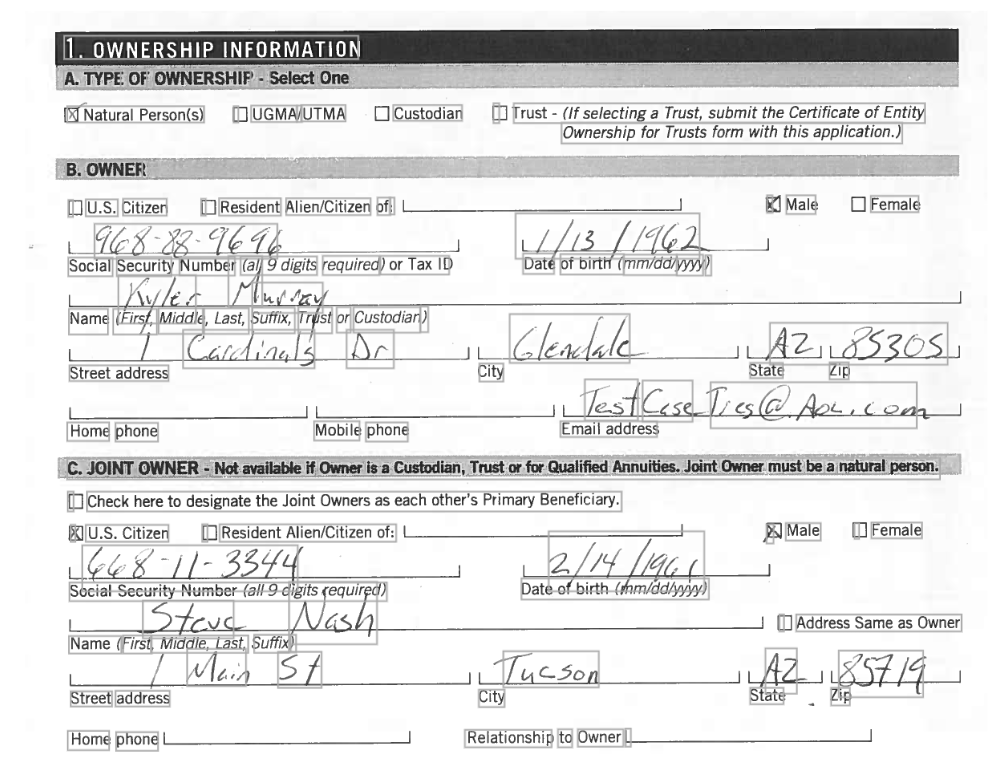 1. OWNERSHIP INFORMATION
A. TYPE OF OWNERSHIP - Select One
Natural Person(s) UGMA/UTMA Custodian Trust - (If selecting a Trust, submit the Certificate of Entity
Ownership for Trusts form with this application.)
B. OWNER
U.S. Citizen Resident Alien/Citizen of: Male Female
968-88-9696 1/13/1962
Social Security Number (all 9 digits required) or Tax ID Date of birth (mm/dd/yyyy)
Kyler Murray
Name (First, Middle, Last, Suffix, Trust or Custodian)
1 Cardinals Dr Glendale AZ 85305
Street address City State Zip
TestCaseTies@AOL.com
Home phone Mobile phone Email address
C. JOINT OWNER - Not available if Owner is a Custodian, Trust or for Qualified Annuities. Joint Owner must be a natural person.
Check here to designate the Joint Owners as each other's Primary Beneficiary.
U.S. Citizen Resident Alien/Citizen of: Male Female
668-11-3344 2/14/1961
Social Security Number (all 9 digits required) Date of birth (mm/dd/yyyy)
Steve Nash Address Same as Owner
Name (First, Middle, Last, Suffix)
1 Main St Tucson AZ 85719
Street address City State Zip
Home phone Relationship to Owner